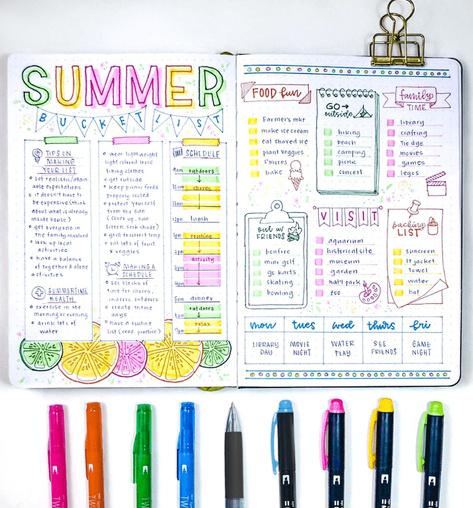 SUMMER
BUCKET LIST
TIPS ON
MAKING
YOUR LIST
• set realistic/attain
able expectations
• it doesn't have
to be expensive (think
about what is already
• get everyone in
the family involved
• look up local
activities
• have a balance
of together & alone
activities
SUMMERTIME
HEALTH
• exercise in the
morning or evening
• drink lots of
water
• wear lightweight
light colored loose
fitting clothes
• get outside
• keep picnic foods
properly
• protect yourself
from the sun
• get
• eat lots of fruit
& veggies
MAKING A
SCHEDULE
• set blocks of
time for chores,
indoors, outdoors
& create theme
days
• have a routine
list
SCHEDULE
outdoors
chores
lunch
routine
activity
dinner
outdoors
relax
FOOD fun
Farmer's mkt
make ice cream
eat shaved ice
plant veggies
S'mores
bake
GO →
outside
hiking
beach
camping
picnic
concert
family
TIME
library
crafting
tie dye
movies
games
legos
out w/
FRIENDS
bonfire
mini golf
go karts
skating
bowling
VISIT
aquarium
historical site
museum
garden
nat'l park
zoo
packing
LIST
sunscreen
lt jacket
towel
water
hat
mon tues wed thurs fri
LIBRARY DAY
MOVIE NIGHT
WATER PLAY
SEE FRIENDS
GAME NIGHT